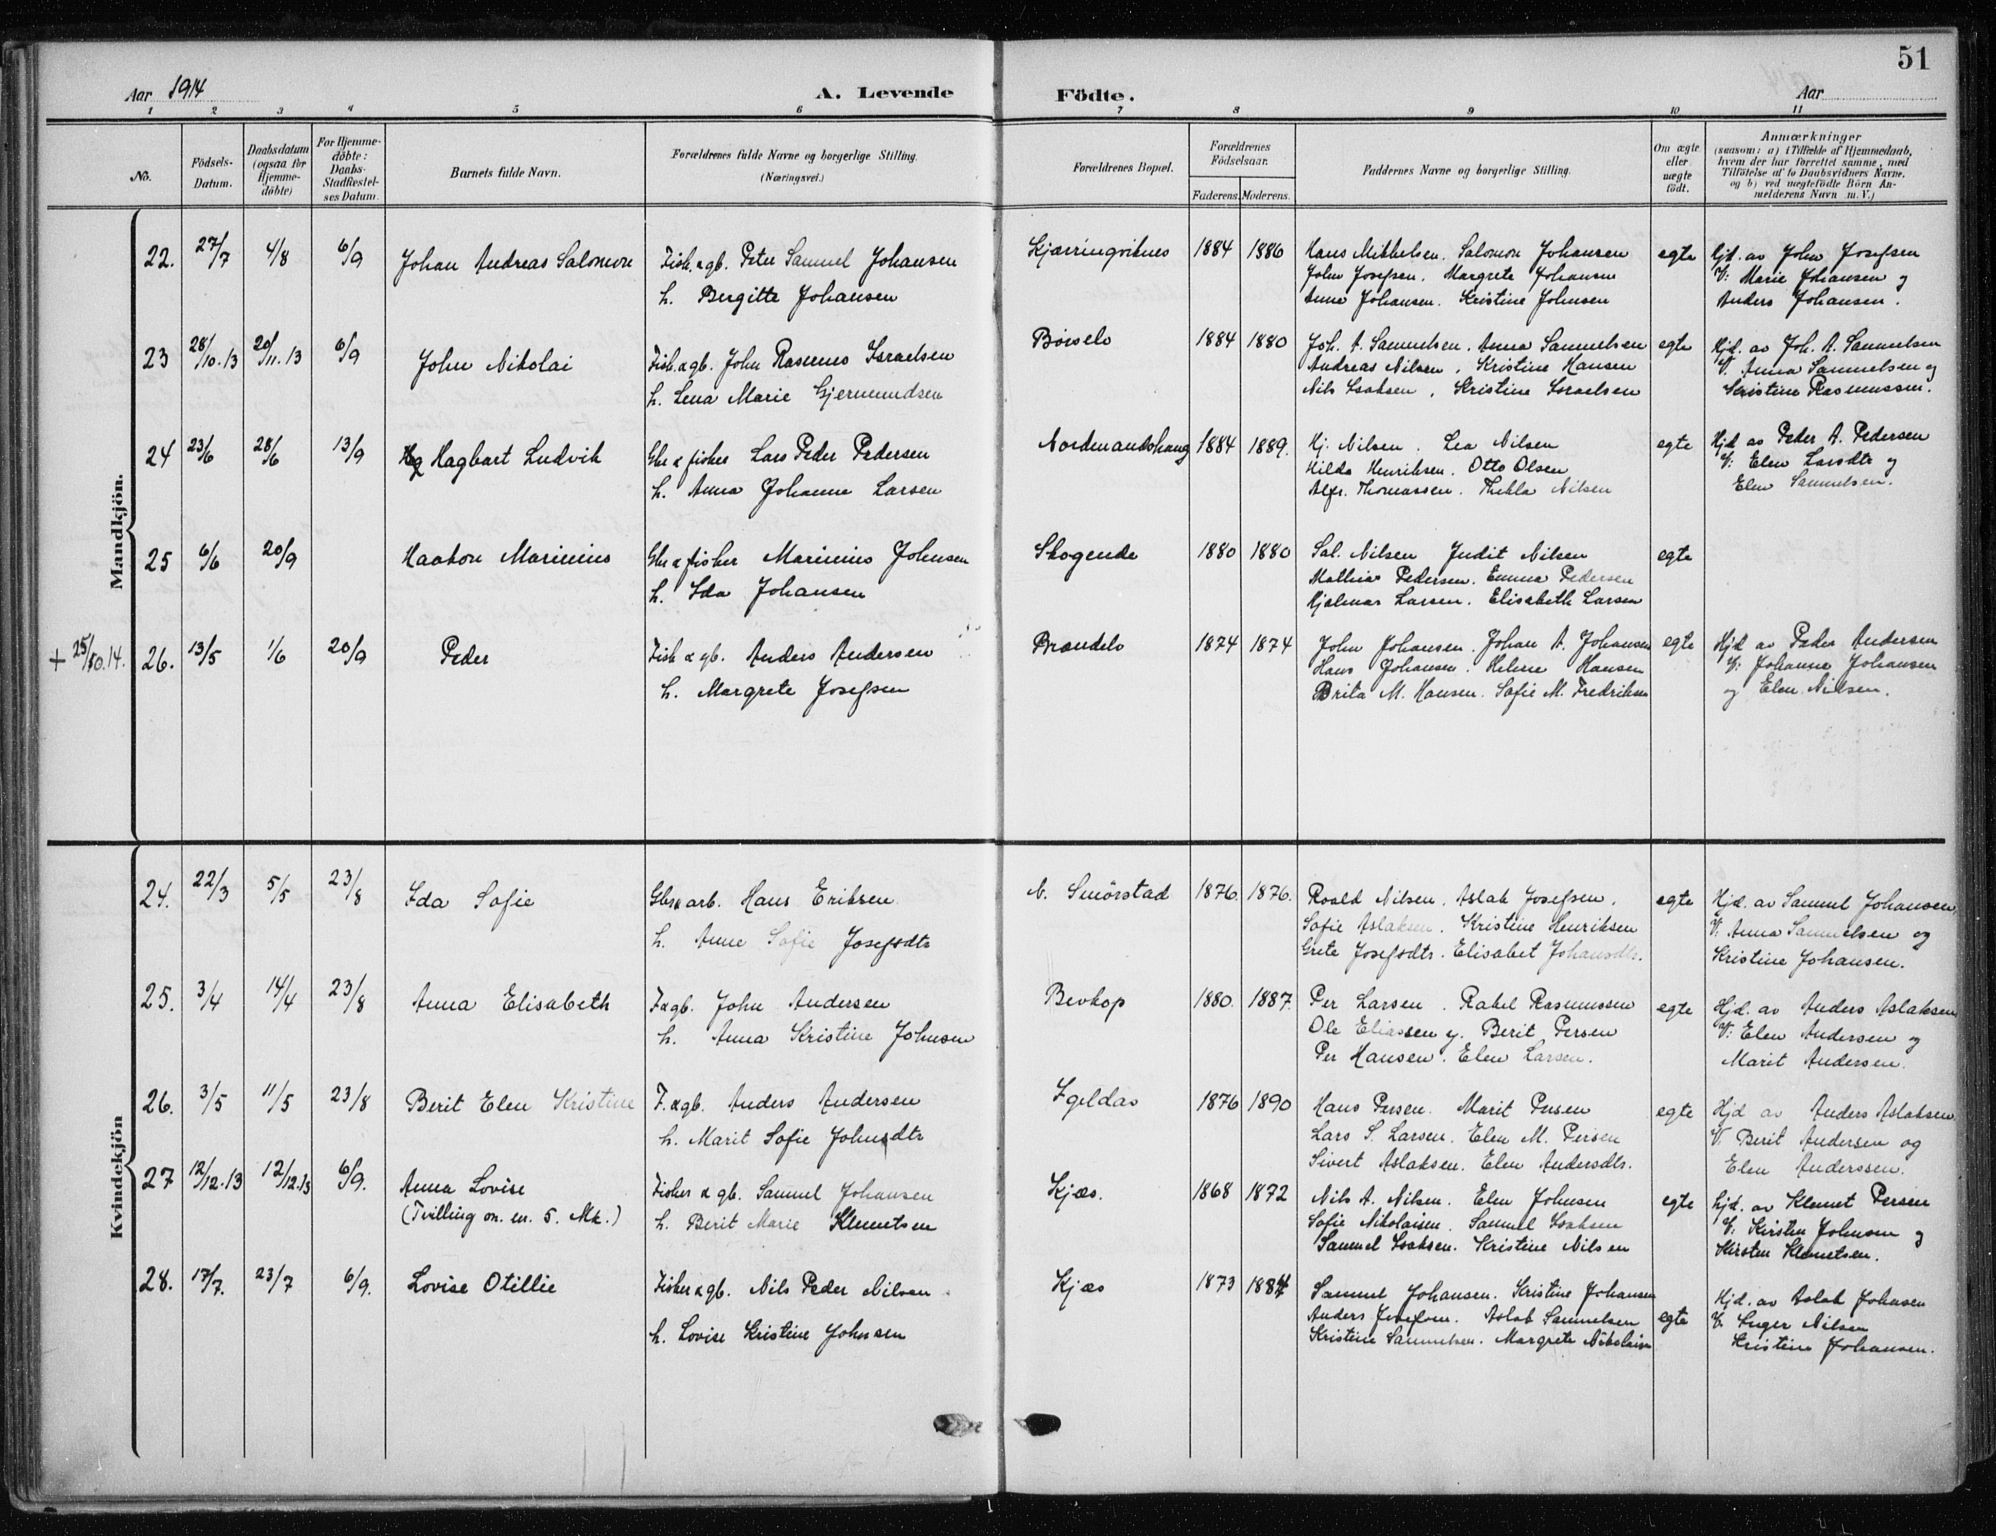 51
Aar 1914 A. Levende Födte. Aar
1 2 3 4 5 6 7 8 9 10 11
No. Födsels-Datum. Daabsdatum (ogsaa for Hjemme-döbte) For Hjemme-döbte: Daabs-Stadfæstel-ses Datum. Barnets fulde Navn. Forældrenes fulde Navne og borgerlige Stilling. (Næringsvei.) Forældrenes Bopæl. Forældrenes Födselsaar. Faderens. Moderens. Faddernes Navne og borgerlige Stilling. Om ægte eller uægte födt. Anmærkninger (saasom: a) i Tilfælde af Hjemmedaab, hvem der har forrettet samme, med Tilföielse af to Daabsvidners Navne, og b) ved uægtefödte Börn An-melderens Navn m. V.)
Mandkjön.
22. 27/7 4/8 6/9 Johan Andreas Salomon Fisk. & gb. Peter Samuel Johansen Kjærringviknes 1884 1886 Hans Mikkelsen. Salomon Johansen egte Hjd. av John Josefsen
John Josefsen. Margrete Johansen V: Marie Johansen og
h. Bergitte Johansen Anna Johansen. Kristine Johnsen Anders Johansen.
23 28/10.13 20/11.13 6/9 John Nikolai Fisk. & gb. John Rasmus Israelsen Børselv 1884 1880 Joh. A. Samuelsen. Anna Samuelsen egte Hjd. av Joh. A. Samuelsen
Andreas Nilsen. Kristine Hansen V. Anna Samuelsen og
h. Lena Marie Gjermundsen Nils Isaksen. Kristine Israelsen Kristine Rasmussen.
24 23/6 28/6 13/9 Hagbart Ludvik Gbr & fisker Lars Peder Pedersen Nordmandshaug 1884 1889. Hj. Nilsen. Lea Nilsen egte Hjd av Peder A. Pedersen
Hilda Henriksen. Otto Olsen V: Elen Larsdtr og
h. Anna Johanne Larsen Alfr. Thomassen. Thekla Nilsen Elen Samuelsen.
25 6/6 20/9 Haakon Marinius Gbr & fisker Marinius Johnsen Skogende 1880 1880 Sal. Nilsen Judit Nilsen egte
h. Ida Johansen Mathis Pedersen. Emma Pedersen
Hjalmar Larsen. Elisabeth Larsen
+ 25/10.14. 26. 13/5 1/6 20/9 Peder Fisk & gb. Anders Andersen Brændelv 1874 1874 John Johansen. Johan A. Johansen egte Hjd av Peder Andersen
Hans Johansen. Helene Hansen V: Johanna Johansen
h. Margrete Josefsen Brita M. Hansen. Sofie M. Fredriksen og Elen Nilsen.
Kvindekjön
24. 22/3 5/5 23/8 Ida Sofie Gbr & arb. Hans Eriksen N. Smørstad 1876. 1876. Roald Nilsen. Aslak Josefsen. egte Hjd. av Samuel Johansen
h. Anne Sofie Josefsdtr Sofie Aslaksen. Kristine Henriksen V. Anna Samuelsen og
Grete Josefsdtr. Elisabet Johansdtr. Kristine Johansen.
25. 3/4 14/4 23/8 Anna Elisabeth F & gb. John Andersen Bevkop 1880. 1887. Per Larsen. Rakel Rasmussen egte Hjd. av Anders Aslaksen
Ole Eliassen y. Berit Persen V: Elen Andersen og
h. Anna Kristine Johnsen Per Hansen. Elen Larsen. Marit Andersen.
26. 3/5 11/5 23/8 Berit Elen Kristine F. & gb. Anders Andersen Igeldas 1876 1890 Hans Persen. Marit Persen egte Hjd av Anders Aslaksen
h. Marit Sofie Johnsdtr Lars S. Larsen. Elen M. Persen V. Berit Andersen og
Sivert Aslaksen. Elen Andersdtr. Elen Anderssen.
27 12/12.13 12/12.13 6/9. Anna Lovise Fisker & gb. Samuel Johansen Kjæs. 1868 1872 Nils A. Nilsen. Elen Johnsen egte Hjd. av Klemet Persen
(Tvilling m. nr. 5. Mk.) h. Berit Marie Klemetsen Sofie Nikolaisen. Samuel Isaksen V: Kirsten Johnsen og
Samuel Isaksen. Kristine Nilsen Kirsten Klemetsen.
28. 17/7. 23/7 6/9. Lovise Otillie Fisker & gb. Nils Peder Nilsen Kjæs 1873 1884 Samuel Johansen. Kristine Johansen egte Hjd. av Aslak Johnsen
Anders Josefsen. Aslak Samuelsen V. Inger Nilsen
h. Lovise Kristine Johnsen Kristine Samuelsen. Margrete Nikolaisen Kristine Johansen.